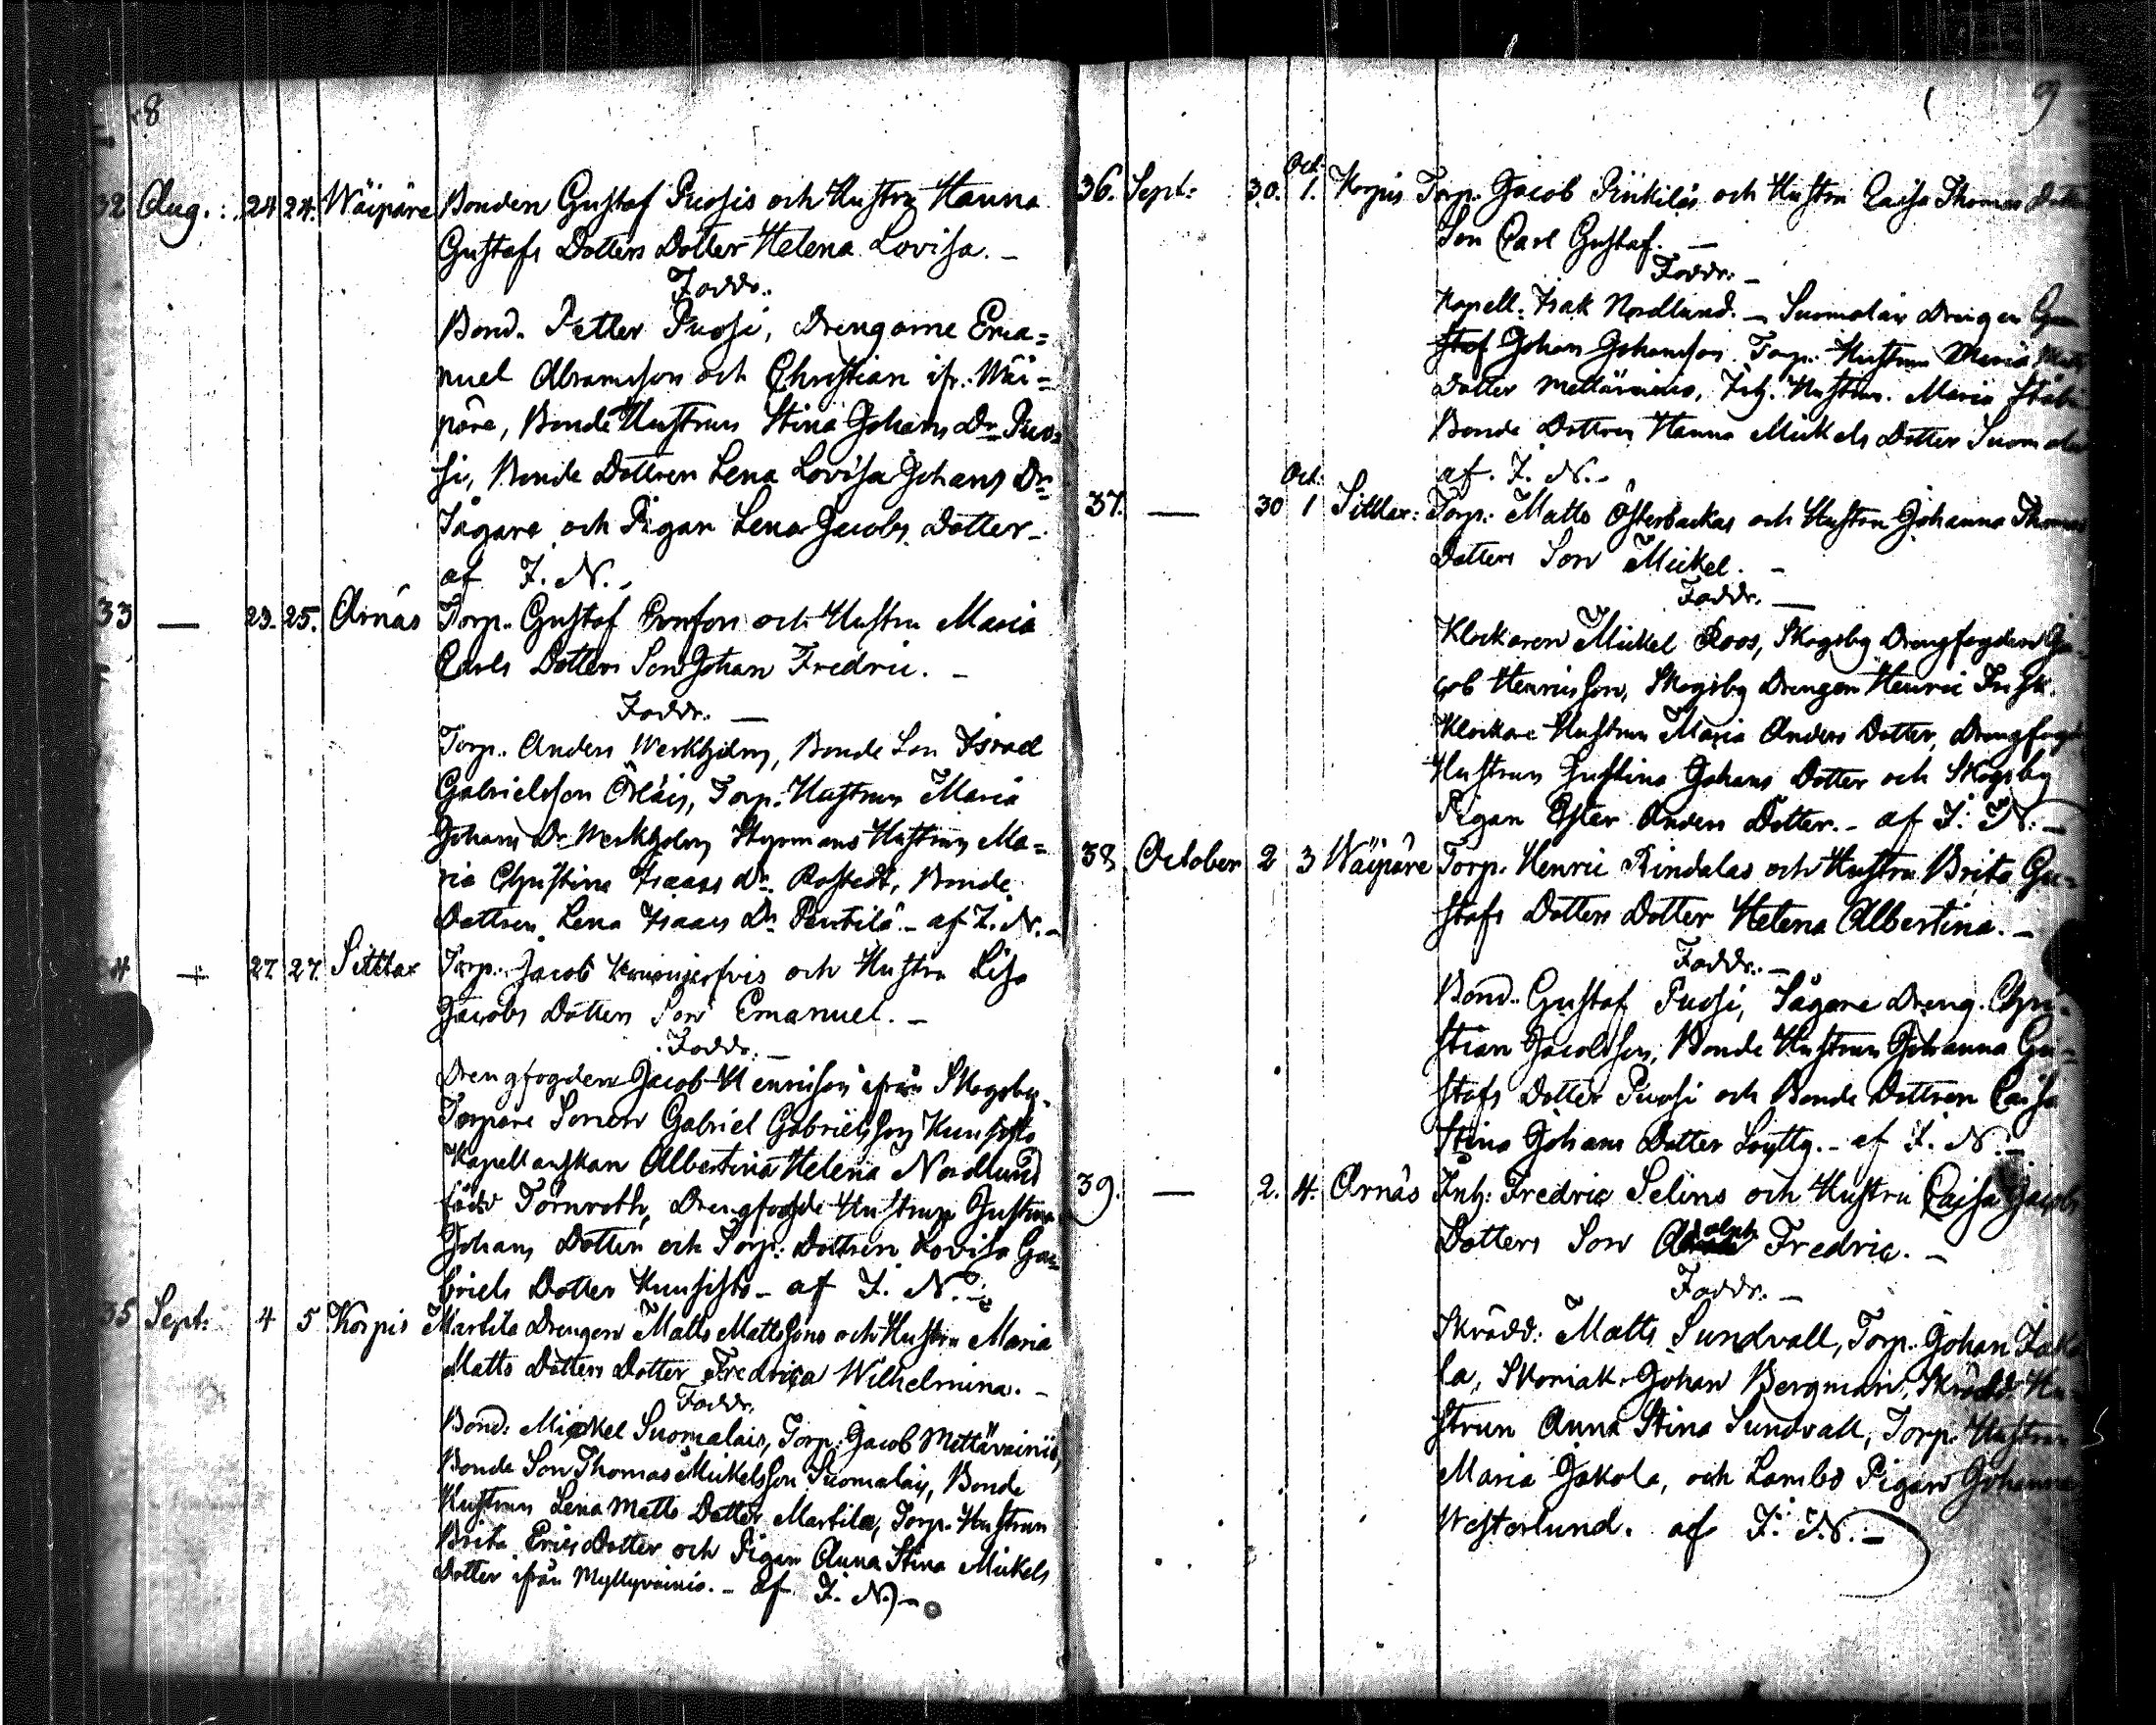 8
32 Aug.: 24 24. Wäipäre Bonden Gustaf Puosis och Hustru Hanna
Gustafs Dotters Dotter Helena Lovisa. –
Faddr.:
Bond. Petter Puosi, Drengarne Ema=
nuel Abramsson och Christian ifr. Wäi=
päre, Bonde Hustrun Stina Johans Dr Puo=
si, Bonde Dottren Lena Lovisa Johans Dr
Sågare och Pigan Lena Jacobs Dotter –
af I. N. –
33 — 23. 25. Arnäs Torp. Gustaf och Hustru Maria
Carls Dotters Son Johan Fredric. –
Faddr. —
Torp. Anders Werkholm, Bonde Son Israel
Gabrielsson Torp. Hustrun Maria
Johans Dr Werkholm Styrmans Hustrun Ma=
ria Christina Isaacs Dr. Rostedt, Bonde
Dottren Lena Isaacs Dr Pentilä – af I. N. –
4 — 27. 27. Sittlax Torp. Jacob och Hustru Lisa
Jacobs Dotters Son Emanuel. –
Faddr. –
Drengfogden Jacob Henrisson ifrån Skogsby
Torpare Sonen Gabriel Gabrielsson Kunsisto
Kapellanskan Albertina Helena Nordlund
född Törnroth, Drengfogde Hustrun Justina
Johans Dotter och Torp: Dottren Lovisa Ga=
briels Dotter Kunsisto – af I. N. –
35 Sept: 4 5 Korpis Martila Drengen Matts Mattssons och Hustru Maria
Matts Dotters Dotter Fredrica Wilhelmina. –
Faddr.
Bond: Mickel Suomalais, Torp: Jacob Mettävainio,
Bonde Son Thomas Mickelsson Suomalais, Bonde
Hustrun Lena Matts Dotter Martila, Torp. Hustrun
Brita Erics Dotter och Pigan Anna Stina Mickels
Dotter ifrån Myllyvainio. – af I. N. –
9
36. Sept: 30. Oct. 1. Korpis Torp. Jacob Pinkiläs och Hustru Caisa Thomas Dotters
Son Carl Gustaf. —
Faddr. –
Kapell. Isak Nordlund. – Suomalais Drengen
Johan Johansson. Torp. Hustrun Maria
Dotter Mettävainio, Inh. Hustrun Maria
Bonde Dottren Hanna Mickels Dotter
af. I. N. –
37. — 30 Oct: 1 Sittlax: Torp: Matts Österbackas och Hustru Johanna Thomas
Dotters Son Mickel. –
Faddr. —
Klockaren Mickel Roos, Skogsby Drengfogden Ja=
cob Henrisson, Skogsby Drengen Henric Frisk.
Klockare Hustrun Maria Anders Dotter, Drengfogde
Hustrun Justina Johans Dotter och Skogsby
Pigan Ester Anders Dotter. – af I. N. –
38. October 2 3 Wäipäre Torp. Henric Rindalas och Hustru Brita Gu=
stafs Dotters Dotter Helena Albertina. –
Faddr. –
Bond. Gustaf Puosi, Sågare Dreng. Chri=
stian Jacobsson, Bonde Hustrun Johanna Gu=
stafs Dotter Puosi och Bonde Dottren Caisa
Stina Johans Dotter Löytty. – af I. N. –
39. — 2. 4. Arnäs Inh: Fredric Selins och Hustru Caisa Jacobs
Dotters Son Adolph Fredric. –
Faddr. –
Skrädd: Matts Sundvall, Torp. Johan Jako=
la, Skomak. Johan Bergman, Skrädd. Hu=
strun Anna Stina Sundvall, Torp. Hustrun
Maria Jakola, och Lambo Pigan Johanna
Westerlund. af I. N. –